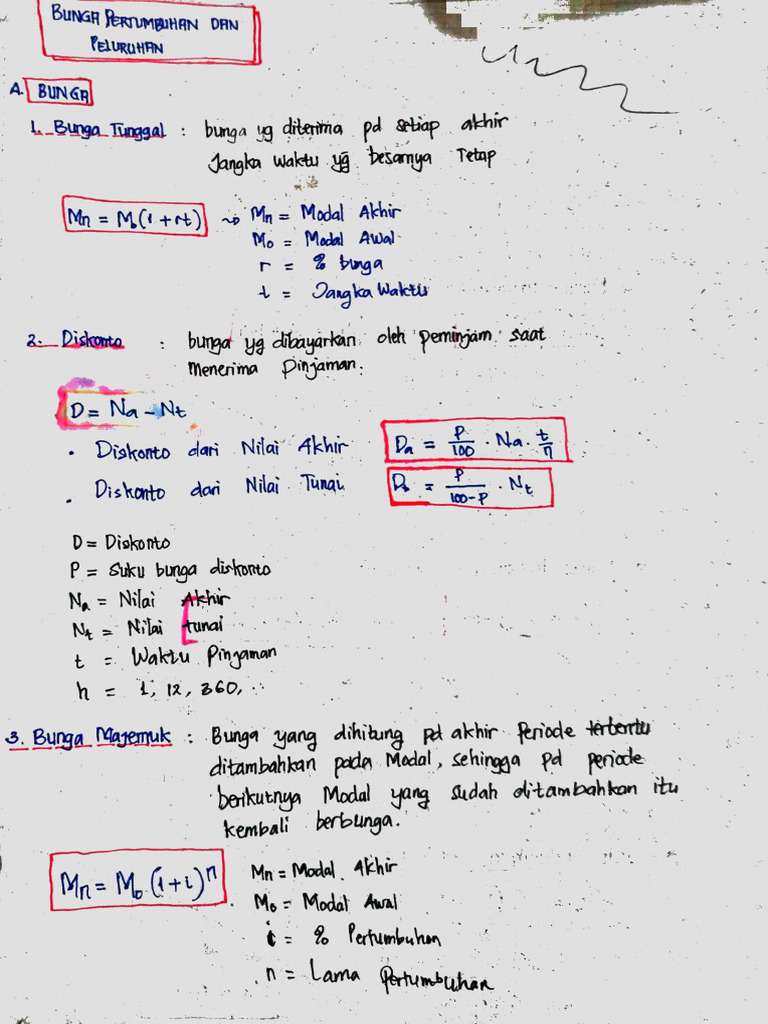 BUNGA PERTUMBUHAN DAN
PELURUHAN
A. BUNGA
1. Bunga Tunggal : bunga yg diterima pd setiap akhir
Jangka waktu yg besarnya Tetap
Mn = Mo(1 + rt) → Mn = Modal Akhir
Mo = Modal Awal
r = % bunga
t = Jangka Waktu
2. Diskonto : bunga yg dibayarkan oleh peminjam saat
Menerima Pinjaman.
D = Na - Nt
. Diskonto dari Nilai Akhir Da = P/100 . Na . t/n
. Diskonto dari Nilai Tunai Db = P/100-P . Nt
D = Diskonto
P = Suku bunga diskonto
Na = Nilai Akhir
Nt = Nilai tunai
t = Waktu Pinjaman
h = 1, 12, 360, ..
3. Bunga Majemuk : Bunga yang dihitung pd akhir Periode tertentu
ditambahkan pada Modal, sehingga pd periode
berikutnya Modal yang sudah ditambahkan itu
kembali berbunga.
Mn = Mo (1+i)^n
Mn = Modal Akhir
Mo = Modal Awal
i = % Pertumbuhan
n = Lama Pertumbuhan